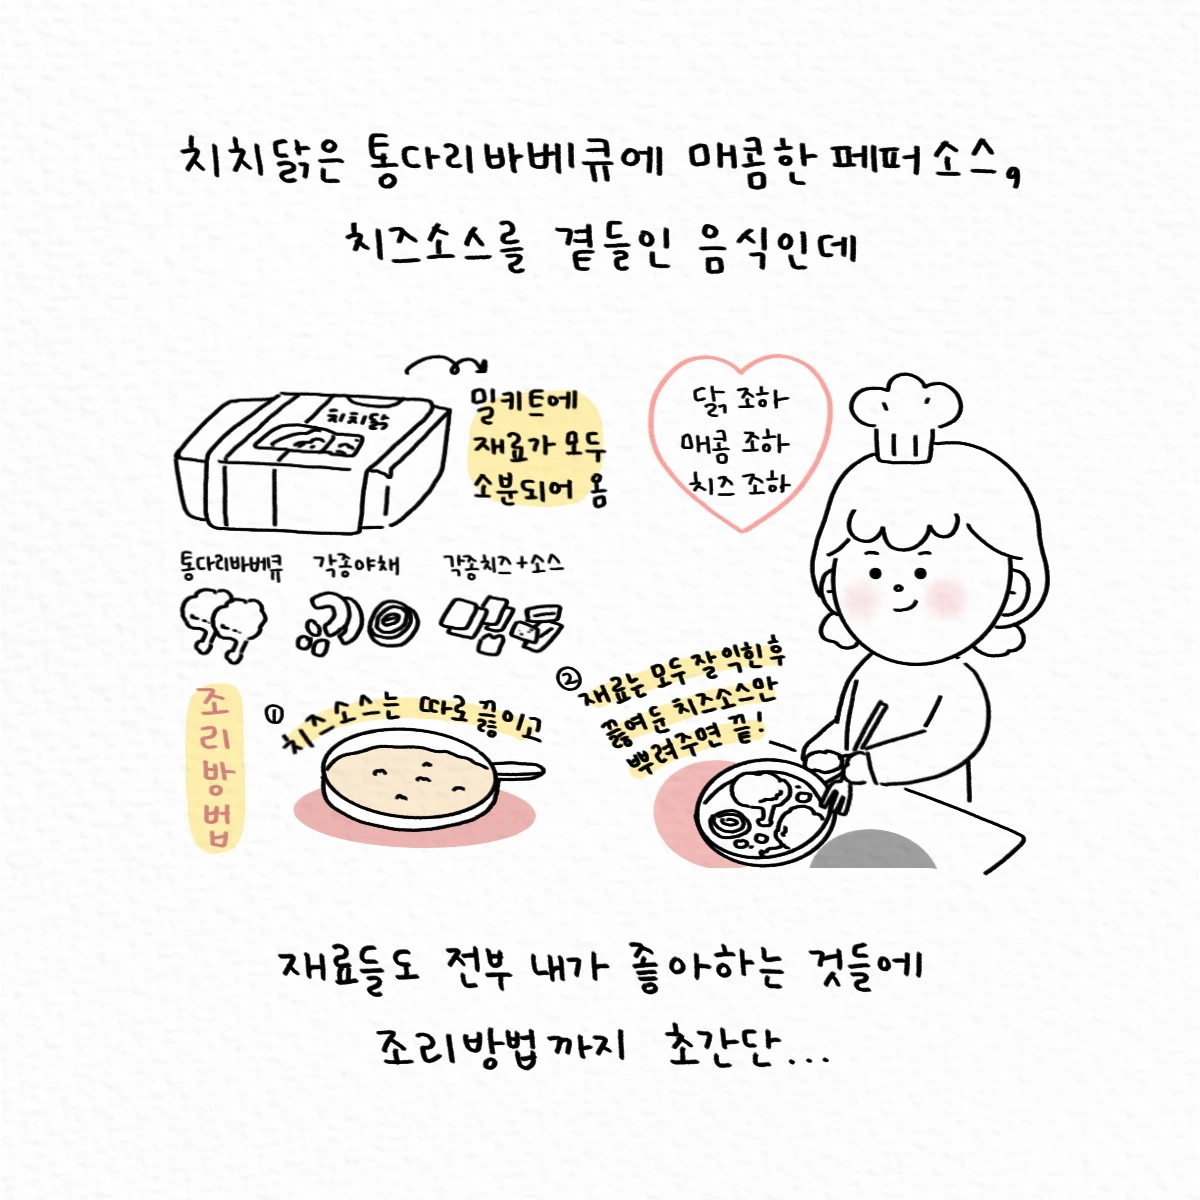 치치닭은 통다리바베큐에 매콤한 페퍼소스,
치즈소스를 곁들인 음식인데
치치닭
밀키트에
재료가 모두
소분되어 옴
닭 조하
매콤 조하
치즈 조하
통다리바베큐
각종야채
각종치즈+소스
조리방법
① 치즈소스는 따로 끓이고
② 재료는 모두 잘 익힌 후
끓여둔 치즈소스만
뿌려주면 끝!
재료들도 전부 내가 좋아하는 것들에
조리방법까지 초간단...